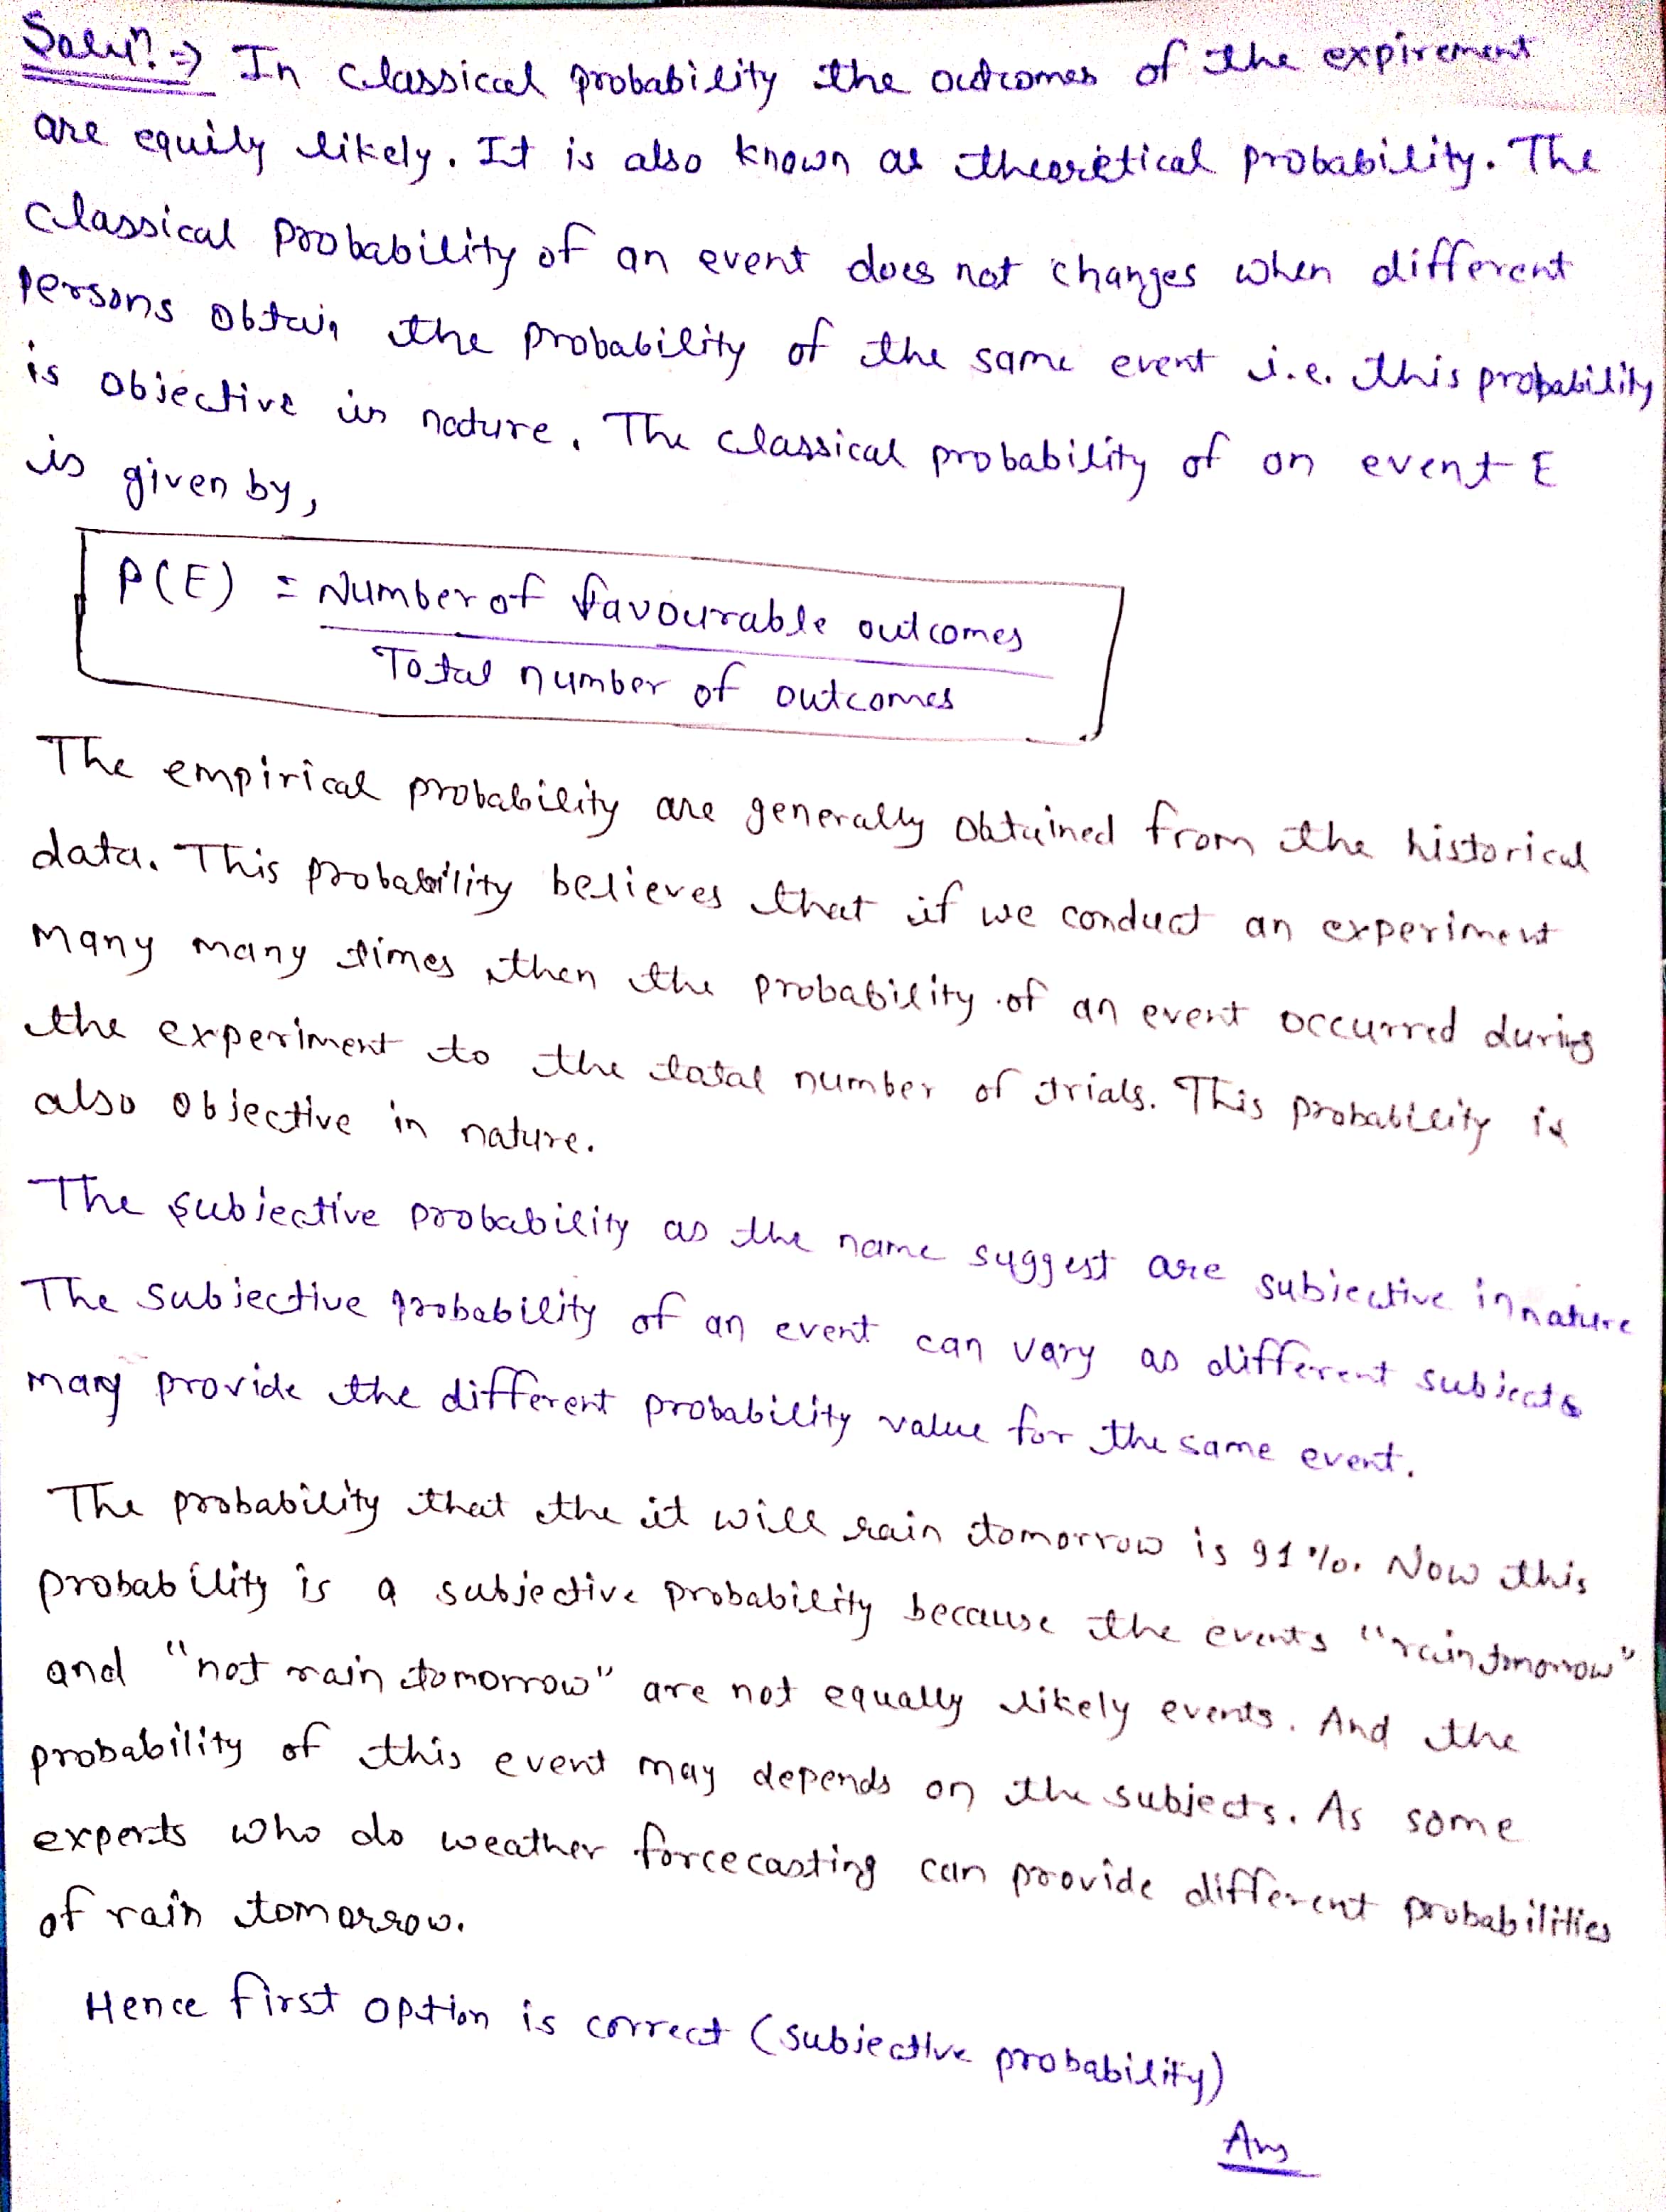 Solun. ⇒ In classical probability the outcomes of the expirement
are equily likely. It is also known as theoretical probability. The
classical probability of an event does not changes when different
persons obtain the probability of the same event i.e. this probability
is objective in nature. The classical probability of an event E
is given by,
P(E) = Number of favourable outcomes
Total number of outcomes
The empirical probability are generally obtained from the historical
data. This probability believes that if we conduct an experiment
many many times then the probability of an event occurred during
the experiment to the total number of trials. This probability is
also objective in nature.
The subjective probability as the name suggest are subjective in nature
The subjective probability of an event can vary as different subjects
many provide the different probability value for the same event.
The probability that the it will rain tomorrow is 91%. Now this
probability is a subjective probability because the events "rain tomorrow"
and "not rain tomorrow" are not equally likely events. And the
probability of this event may depends on the subjects. As some
experts who do weather forcecasting can provide different probabilities
of rain tomorrow.
Hence first option is correct (subjective probability)
Ans